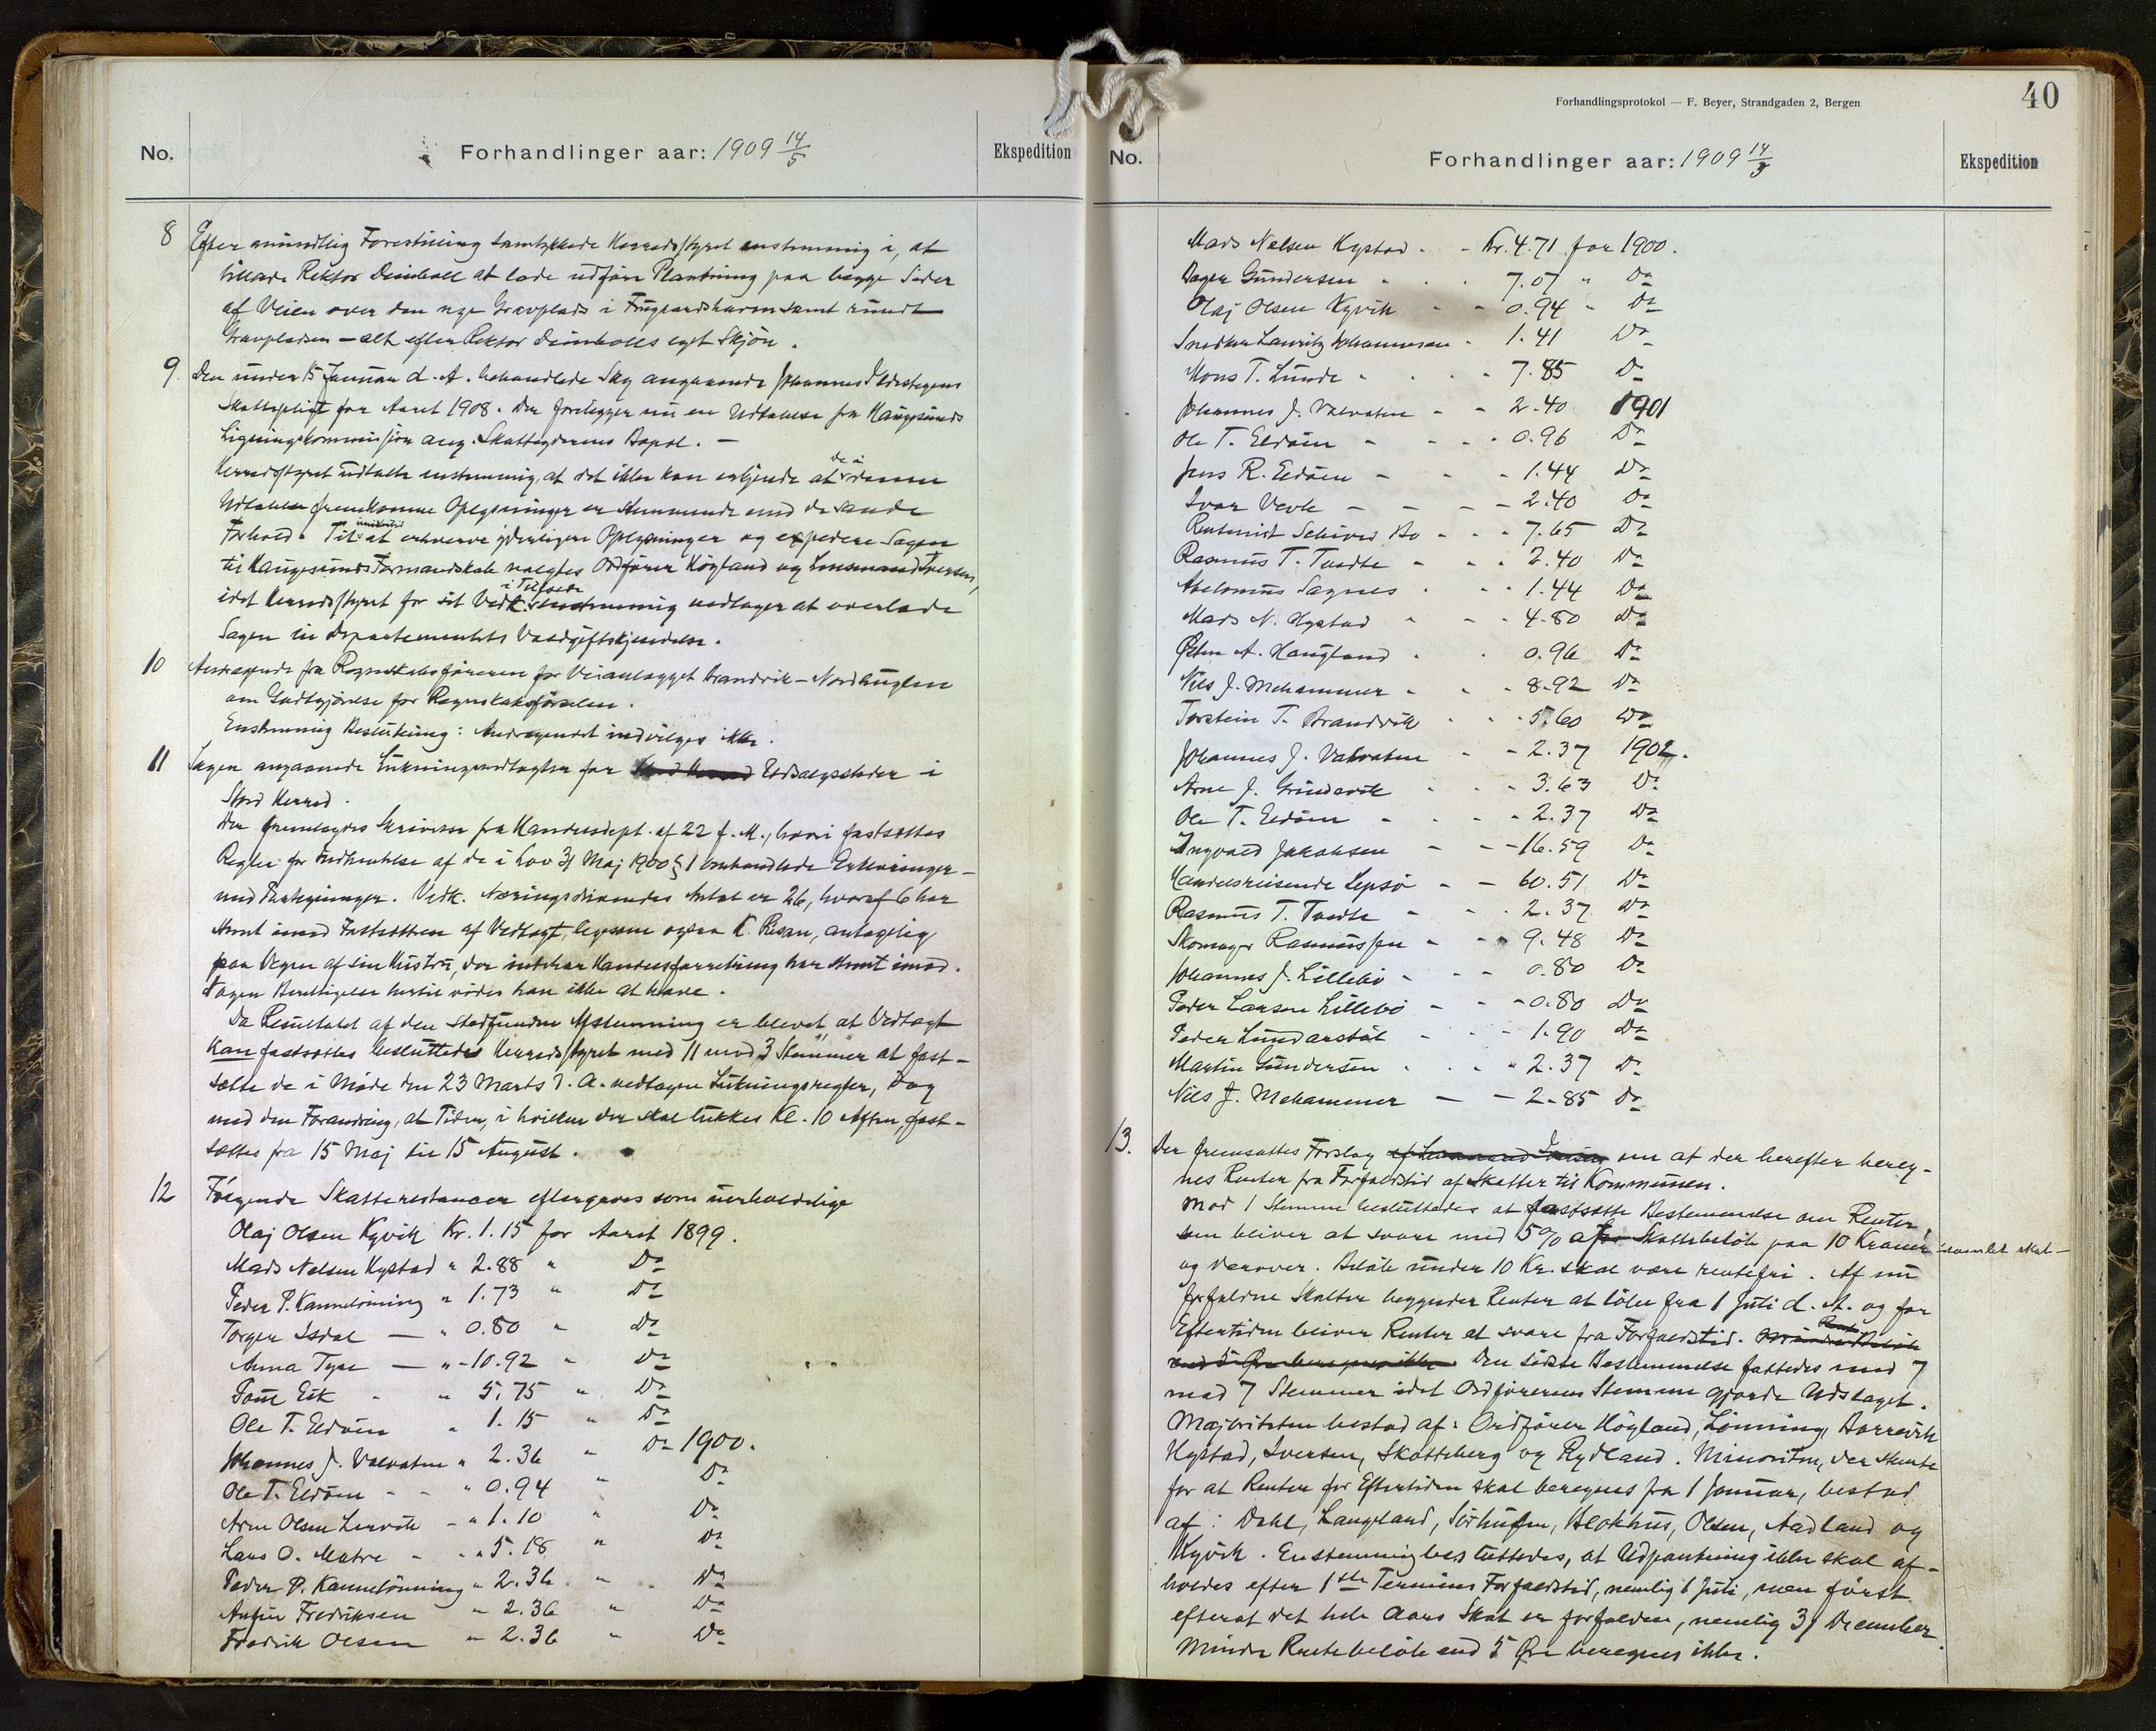 No. Forhandlinger aar: 1909 14/5 Ekspedition
8 Efter mundtlig Forestilling samtykkede Herredsstyret enstemmig i, at
tillade Rektor Deinboll at lade udføre Plantning paa begge Sider
af Veien over den nye Gravplads i Frugaardshavn samt rundt
Gravpladsen - alt efter Rektor Deinbolls eget Skjøn.
9. Den under 15 Januar d. A. behandlede Sag angaaende Johannes
Skattepligt for Aaret 1908. Der foreligger nu en Udtalelse fra Haugesunds
Ligningskommission ang. Skatteyderens Bopæl. -
Herredsstyret udtalte enstemmig, at det ikke kan erkjende at de i denne
Udtalelse fremkomne Oplysninger er stemmende med de sande
Forhold. Til at erhverve yderligere Oplysninger og expedere Sagen
til Haugesunds Formandskab valgtes Ordfører Högland og Lensmand Iversen,
idet Herredsstyret for sit Vedk. i Tilfælde enstemmig vedtager at overlade
Sagen til Departementets Voldgiftskjendelse.
10 Andragende fra Regnskabsføreren for Veianlægget Grandvik - Nordhuglen
om Godtgjörelse for Regnskabsförselen.
Enstemmig Beslutning: Andragendet indvilges ikke.
11 Sagen angaaende Lukningsvedtægter for Stord Herred Udsalgssteder i
Stord Herred.
Der fremlagdes Skrivelse fra Handelsdept. af 22 f. M., hvori fastsættes
Regler for Indhentelse af de i Lov 31 Maj 1900 § 1 omhandlede Erklæringer -
med Paategninger. Vedk. Næringsdrivendes Antal er 26, hvoraf 6 har
stemt imod Fastsættelse af Vedtægt, ligesom ogsaa K. Risan, antagelig
paa Vegne af sin Hustru, der indehar Handelsforretning har stemt imod.
Nogen Berettigelse hertil vides han ikke at have.
Da Resultatet af den stedfundne Afstemning er blevet at Vedtægt
kan fastsættes besluttedes Herredsstyret med 11 mod 3 Stemmer at fast-
sætte de i Møde den 23 Marts d. A. vedtagne Lukningsregler, dog
med den Forandring, at Tiden, i hvilken der skal lukkes Kl. 10 Aften, fast-
sættes fra 15 Maj til 15 August.
12 Følgende Skatterestancer eftergaves som uerholdelige
Olaj Olsen Kyvik Kr. 1.15 for Aaret 1899.
Mads Nelsen Hystad " 2.88 " Do
Peder P. Kannelönning " 1.73 " Do
Torger Isdal - " 0.80 " Do
Anna Tyse - " - 10.92 " Do
Tom Eik - " 5.75 " Do
Ole T. Eldöen " 1.15 " Do
Johannes J. Valvatne " 2.36 " Do 1900.
Ole T. Eldöen - - " 0.94 " Do
Arne Olsen Lervik - " 1.10 " Do
Lars O. Matre - - " 5.18 " Do
Peder P. Kannelönning " 2.36 " Do
Anfin Fredriksen " 2.36 " Do
Fredrik Olsen " 2.36 " Do
Forhandlingsprotokol — F. Beyer, Strandgaden 2, Bergen 40
No. Forhandlinger aar: 1909 14/5 Ekspedition
Mads Nelsen Hystad - - Kr. 4.71 for 1900.
Dager Gundersen - - - 7.07 " Do
Olaj Olsen Kyvik - - 0.94 " Do
Snedker Lauritz Johannesen - 1.41 Do
Mons T. Lunde - - - - 7.85 Do
Johannes J. Valvatne - - 2.40 1901
Ole T. Eldöen - - - - 0.96 Do
Jens R. Eldöen - - - 1.44 Do
Ivar Vevle - - - - 2.40 Do
Rentenist Schives Bo - - - 7.65 Do
Rasmus T. Tvedte - - - 2.40 Do
Abelonius Sagnes - - - 1.44 Do
Mads N. Hystad - - - 4.80 Do
A. Haugland - - 0.96 Do
Nils J. Mehammer - - - 8.92 Do
Torstein T. Brandvik - - 5.60 Do
Johannes J. Valvatne - - 2.37 1902.
Arne J. Grindevik - - - 3.63 Do
Ole T. Eldöen - - - - 2.37 Do
Ingvald Jakobsen - - - 16.59 Do
Handelsreisende Lepsö - - 60.51 Do
Rasmus T. Tvedte - - - 2.37 Do
Skomager Rasmussen - - 9.48 Do
Johannes J. Lillebö - - - 0.80 Do
Peder Larsen Lillebö - - - 0.80 Do
Peder Lundarstöl - - 1.90 Do
Martin Gundersen - - - - 2.37 Do
Nils J. Mehammer - - 2.85 Do
13. Der fremsattes Forslag af Lensmand Iversen om at der herefter bereg-
nes Renter fra Forfaldstid af Skatter til Kommunen.
Mod 1 Stemme besluttedes at fastsætte Bestemmelse om Renter,
som bliver at svare med 5 % af Skattebeløb paa 10 Kroner samlet skat -
og derover. Beløb under 10 Kr. skal være rentefri. Af nu
forfaldne Skatter begynder Renter at löbe fra 1 Juli d. A. og for
Eftertiden bliver Renter at svare fra Forfaldstid. Mindre Rentebeløb
end 5 Øre beregnes ikke. Den sidste Bestemmelse fattedes med 7
mod 7 Stemmer idet Ordførerens Stemme gjorde Udslaget.
Majoriteten bestod af: Ordfører Högland, Lönning, Aarevik
Hystad, Iversen, Skotteberg og Rydland. Minoriteten, der stemte
for at Renter for Eftertiden skal beregnes fra 1 Januar, bestod
af: Dahl, Langeland, Sörhuglen, Blokhus, Olsen, Aadland og
Kyvik. Enstemmig besluttedes, at Udpantning ikke skal af-
holdes efter 1ste Termins Forfaldstid, nemlig 1 Juli, men först
efterat det hele Aars Skat er forfalden, nemlig 31 December.
Mindre Rentebeløb end 5 Øre beregnes ikke.